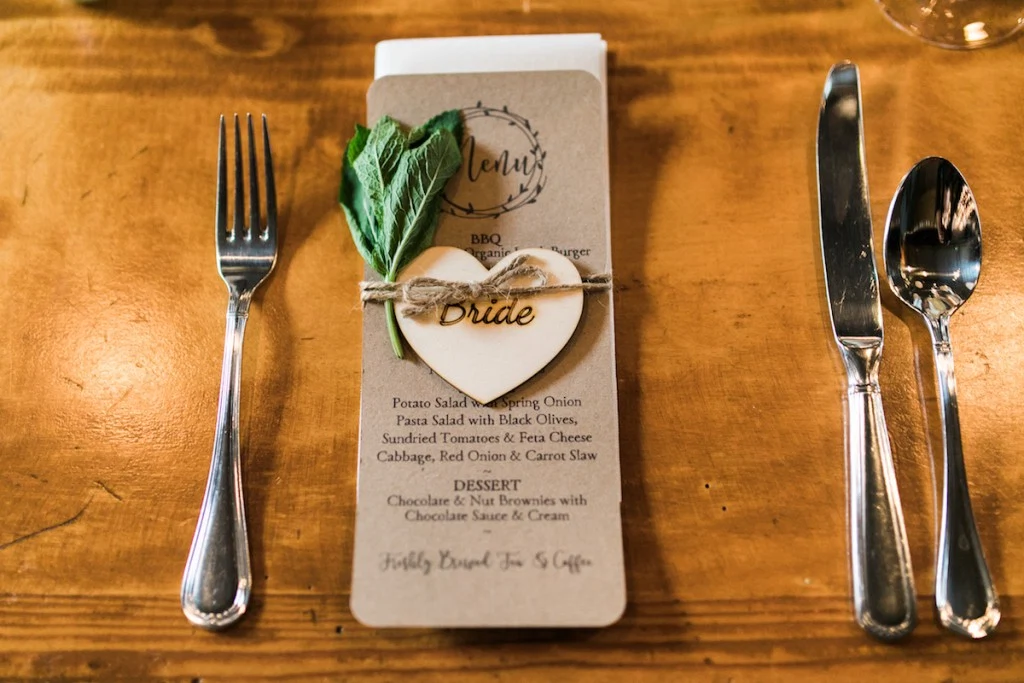 Menu
BBQ
Organic Lamb Burger
Bride
Potato Salad with Spring Onion
Pasta Salad with Black Olives,
Sundried Tomatoes & Feta Cheese
Cabbage, Red Onion & Carrot Slaw
~
DESSERT
Chocolate & Nut Brownies with
Chocolate Sauce & Cream
~
Freshly Brewed Tea & Coffee